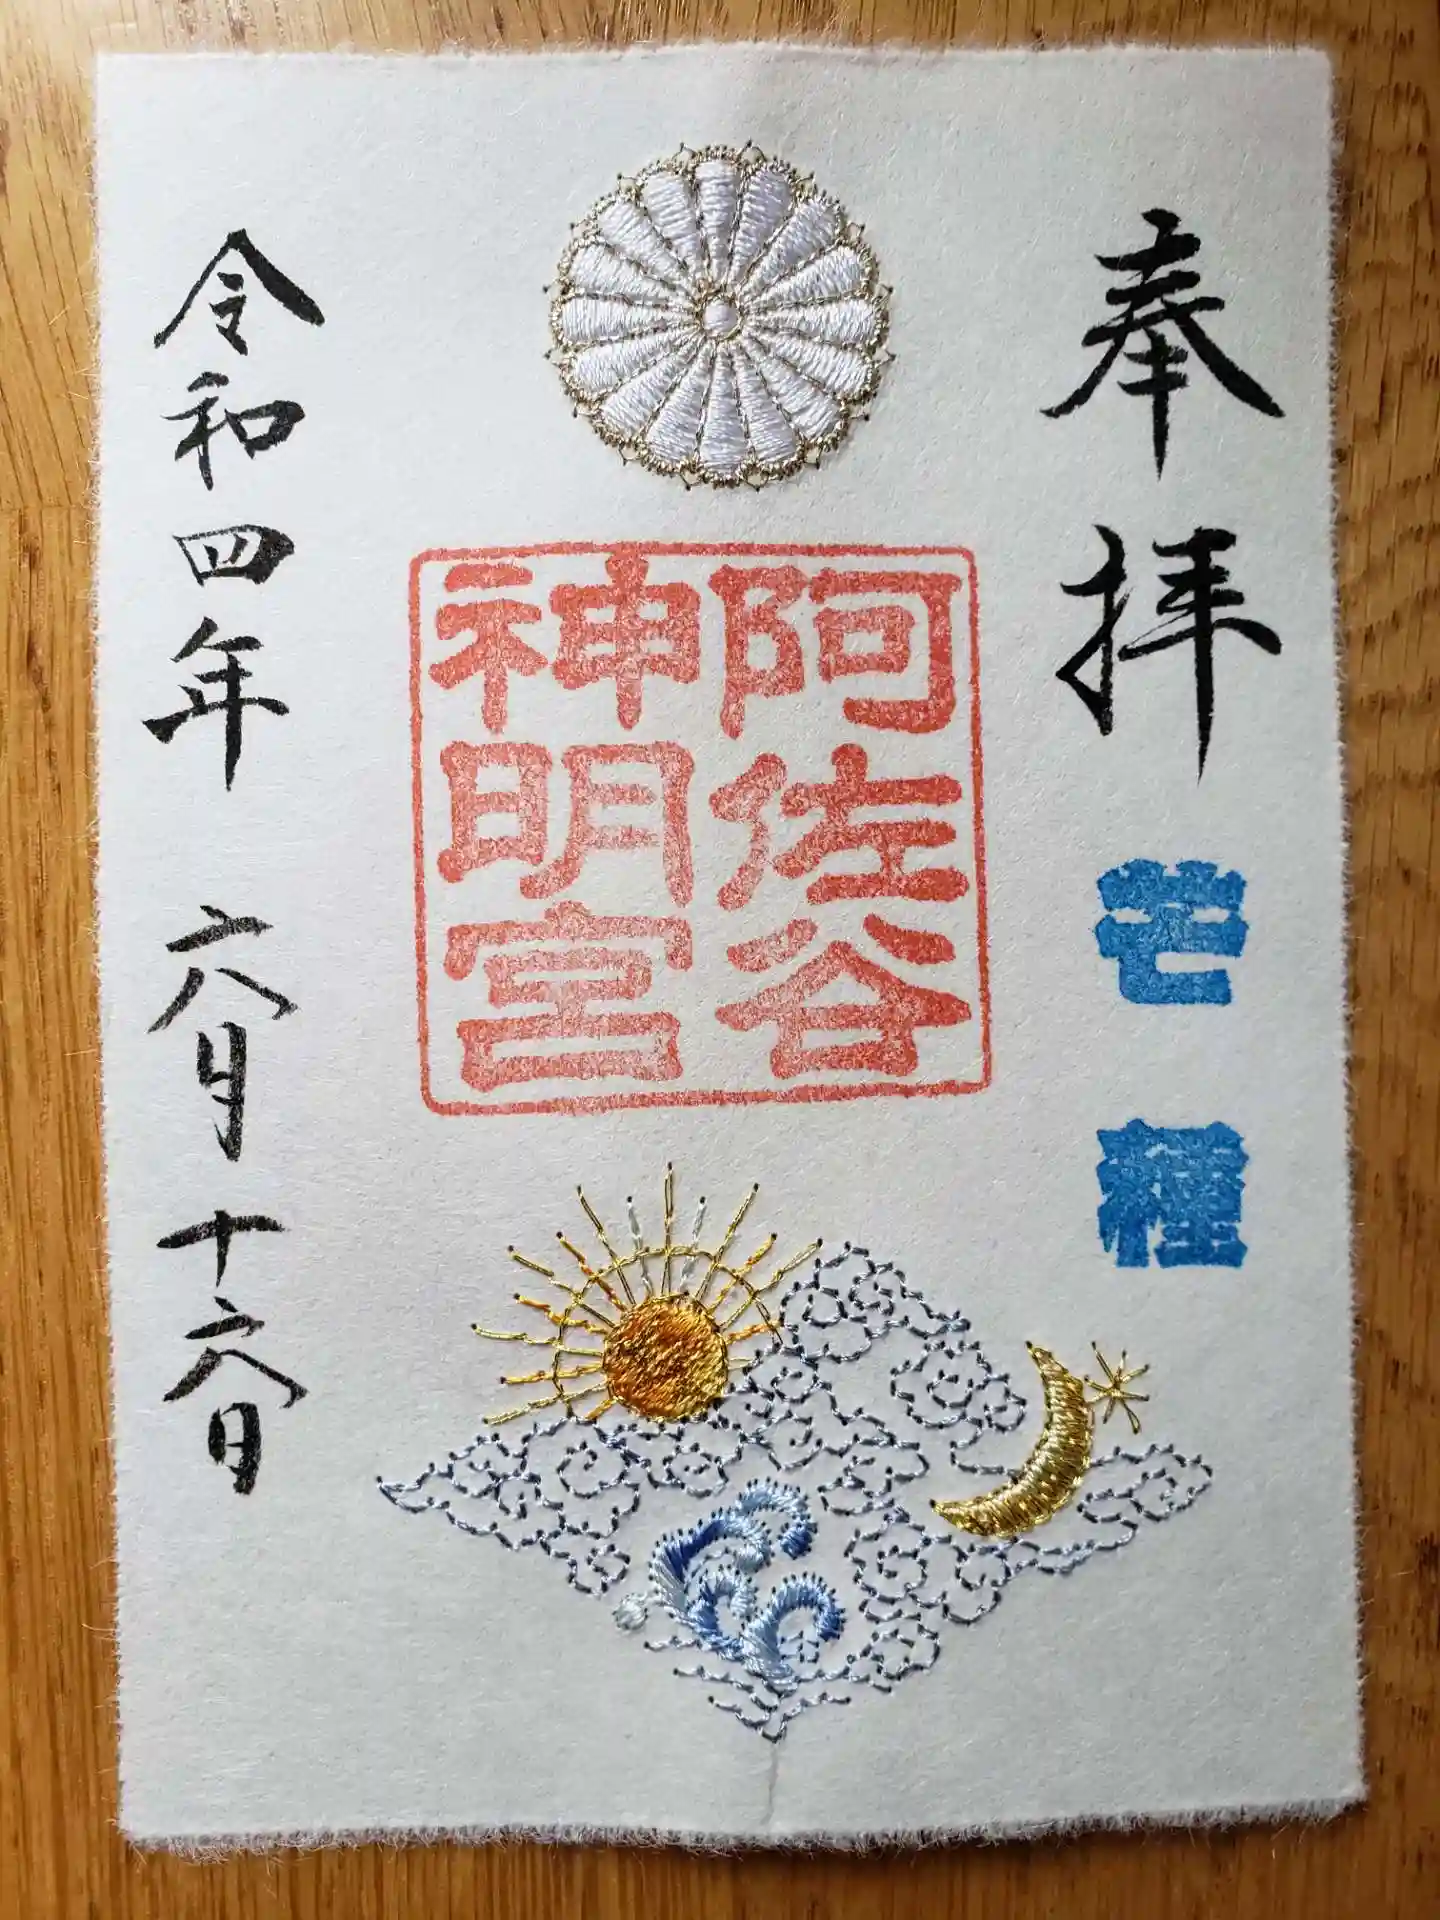 奉拝
芒種
阿佐谷
神明宮
令和四年 六月十六日